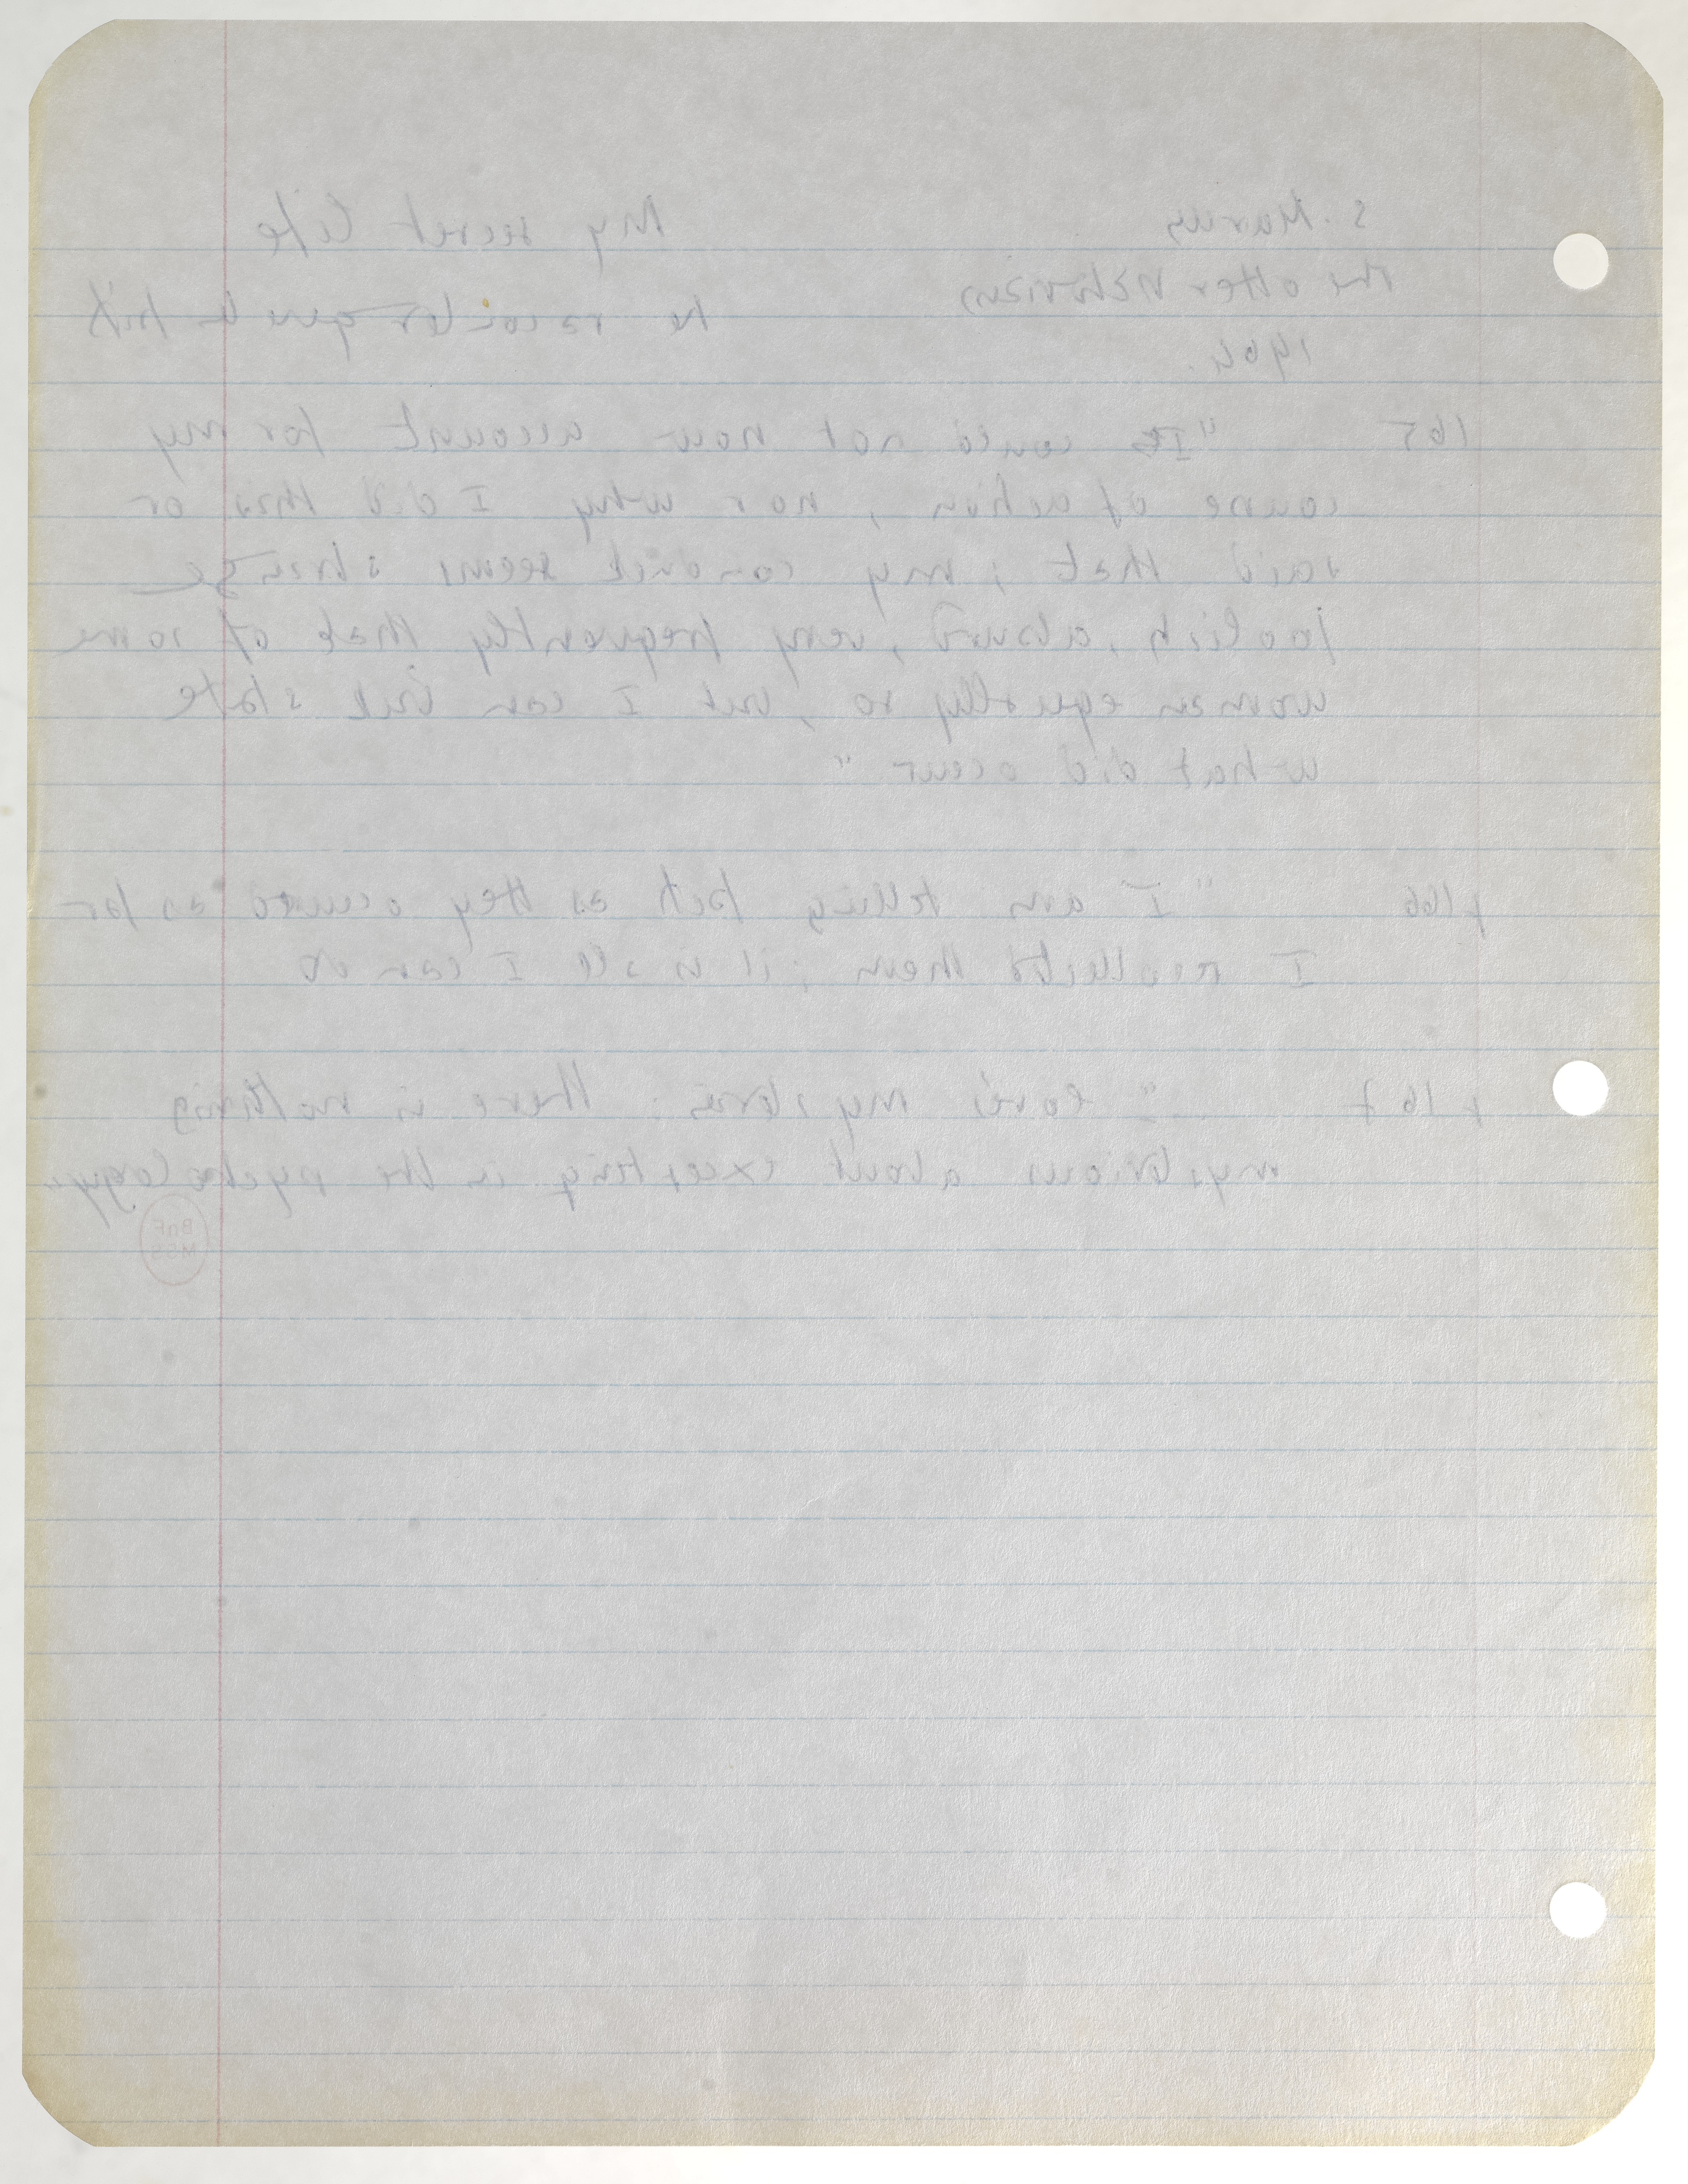 S. Marcus My secret life
The other Victorians
ne raconter que les faits
1964.
165 "I could not now account for my
course of action, nor why I did this or
said that ; my conduct seems strange
foolish, absurd, very frequently that of some
women equally so, but I can but state
what did occur "
p 166 " I am telling facts as they occured as far
I recollects them ; it is all I can do
p 167 " mysteries : there is nothing
mysterious about excepting in the psychology"
BnF
MSS